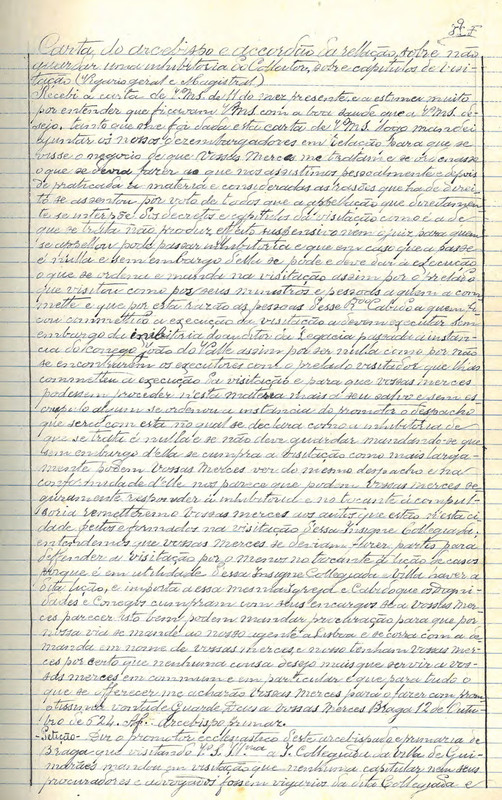 Carta do arcebispo e accordão da rellação, sobre não
guardar uma inhibitoria do Colleitor, sobre capitulos de visi-
tação (Vigario geral e Magistral)
Recebi a carta de V.Ms. de 11 do mez presente, e a estimei muito
por entender que ficavam V.Ms com a boa saude que a V.Ms. de-
sejo, tanto que me foi dada esta carta de V.Ms. logo mandei
ajuntar os nossos Dezembargadores em relação para que se
visse o negocio de que Vossas Mercês me tratam e se ordenasse
o que se devia fazer ao que nos assistimos pessoalmente e depois
de praticada a materia e consideradas as rasões que ha de direi-
to se assentou por voto de todos que a appellação que direitamen-
te se interpõe dos decretos e capitulos da visitação como é a de
que se trata não produz effeito suspensivo nem o juiz para quem
se appellou pode passar inhibitoria e que em caso que a passe
é nulla e sem embargo d'ella se pode e deve dar á execução
o que se ordena e manda na visitação assim por o prelado
que visitou como por seus ministros e pessoas a quem a com-
mette e que por esta razão as pessoas desse Rdo Cabido a quem
foi commettida a execução da visitação a devem executar sem
embargo da inhibitoria do auditor da Legacia passada a instan-
cia do Conego João do Valle assim por ser nulla como por não
se encontrarem os executores com o prelado visitador que lhes
commetteu a execução da visitação e para que vossas merces
podessem proceder n'esta materia mais a seu salvo e sem es-
crupulo algum se ordenou a instancia do promotor o despacho
que será com esta no qual se declara como a inhibitoria de
que se trata é nulla e se não deve guardar mandando-se que
sem embargo d'ella se cumpra a visitação como mais larga-
mente podem Vossas Merces ver do mesmo despacho e na
conformidade d'elle nos parece que podem vossas merces se-
guramente responder á inhibitoria e no tocante á compul-
soria remetteremo Vossas merces aos autos que estão n'esta ci-
dade feitos e formados na visitação dessa Insigne Collegiada;
entendemos que vossas merces se deviam fazer partes para
defender a visitação por o menos no tocante á lição de casos
porque é em utilidade dessa Insigne Collegiada e Villa haver a
dita lição, e importa a essa mesma Igreja e Cabido que os Digni-
dades e Conegos cumpram com seus encargos se a vossas Mer-
ces parecer isto bem podem mandar procuração para que por
nossa via se mande ao nosso agente a Lisboa e se corra com a de-
manda em nome de vossas merces, e nisso tenham Vossas mer-
ces por certo que nenhuma cousa desejo mais que servir a vos-
sas merces em commum e em particular e que para tudo o
que se offerecer me acharão Vossas Merces para o fazer com prom-
ptissima vontade Guarde Deus a Vossas Merces Braga 12 de Outu-
bro de 624. Aff. Arcebispo Primaz.
-Petição- Diz o promotor ecclesiastico d'este arcebispado e primazia de
Braga que visitando V.S. Illma a I. Collegiada da Villa de Gui-
marães mandou em visitação que nenhum capitular nem seus
procuradores e advogados fossem vigarios da dita Collegiada e